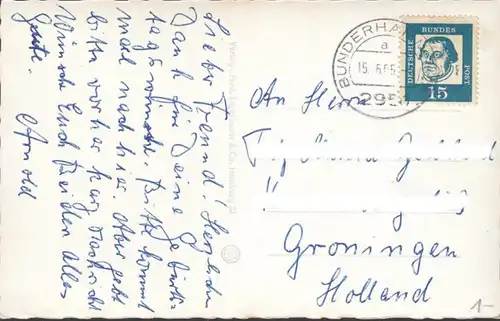 Lieber Freund! Herzlichen
Dank für Deine Geburts-
tagswünsche. Bitte kommt
mal nach hier. Aber gebt
bitte vorher kurz Nachricht
Wünsche Euch beiden alles
Gute.
Arnold
& Co., Hamburg
BUNDERHA
a
15.6.65
295
DEUTSCHE BUNDES POST
15
An Herrn
Groningen
Holland
1-